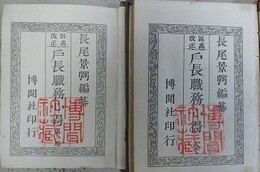 長尾景弼編纂
改正
戸長職務
博聞社印行
博聞
社藏
長尾景弼編纂
改正
戸長職務
博聞社印行
博聞
社藏